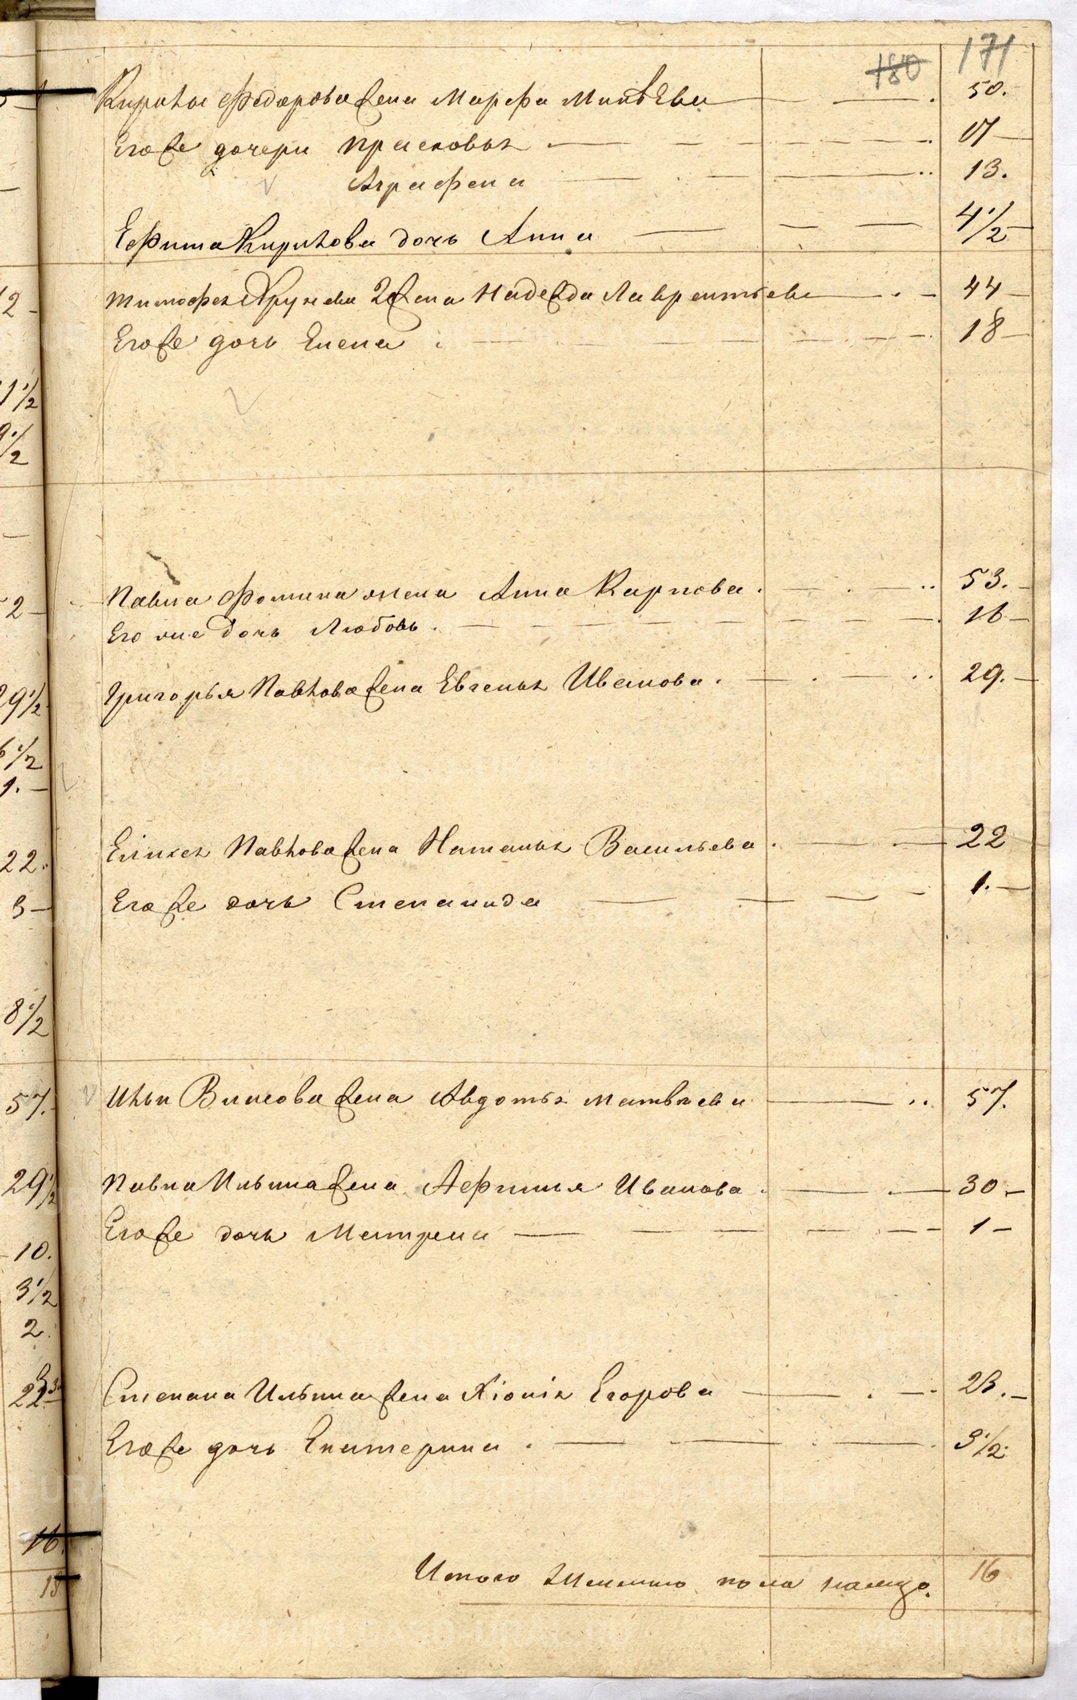 180 171
Кирилы Федорова жена Марфа Минѣева 50.
Его же дочери Прасковья 17
Аграфена 13.
Ефима Кирилова дочь Анна 4 1/2
Тимофея жена Надежда Лаврентьева 44
Его же дочь Елена 18
Павла Фомина жена Анна Карпова 53.
Его же дочь Любовь 16
Григорья Павлова жена Евгенья Иванова 29.
Елисея Павлова жена Наталья Васильева 22
Его же дочь Степанида 1.
Ильи Власова жена Авдотья Матвѣева 57.
Павла Ильина жена Афимья Иванова 30
Его же дочь Матрена 1
Степана Ильина жена Хіонія Егорова 23.
Его же дочь Екатерина 3 1/2
Итого женского пола налицо. 16
2
1 1/2
9 1/2
2
29 1/2
6 1/2
1.
22.
3
8 1/2
57.
29 1/2
10.
3 1/2
2
16.